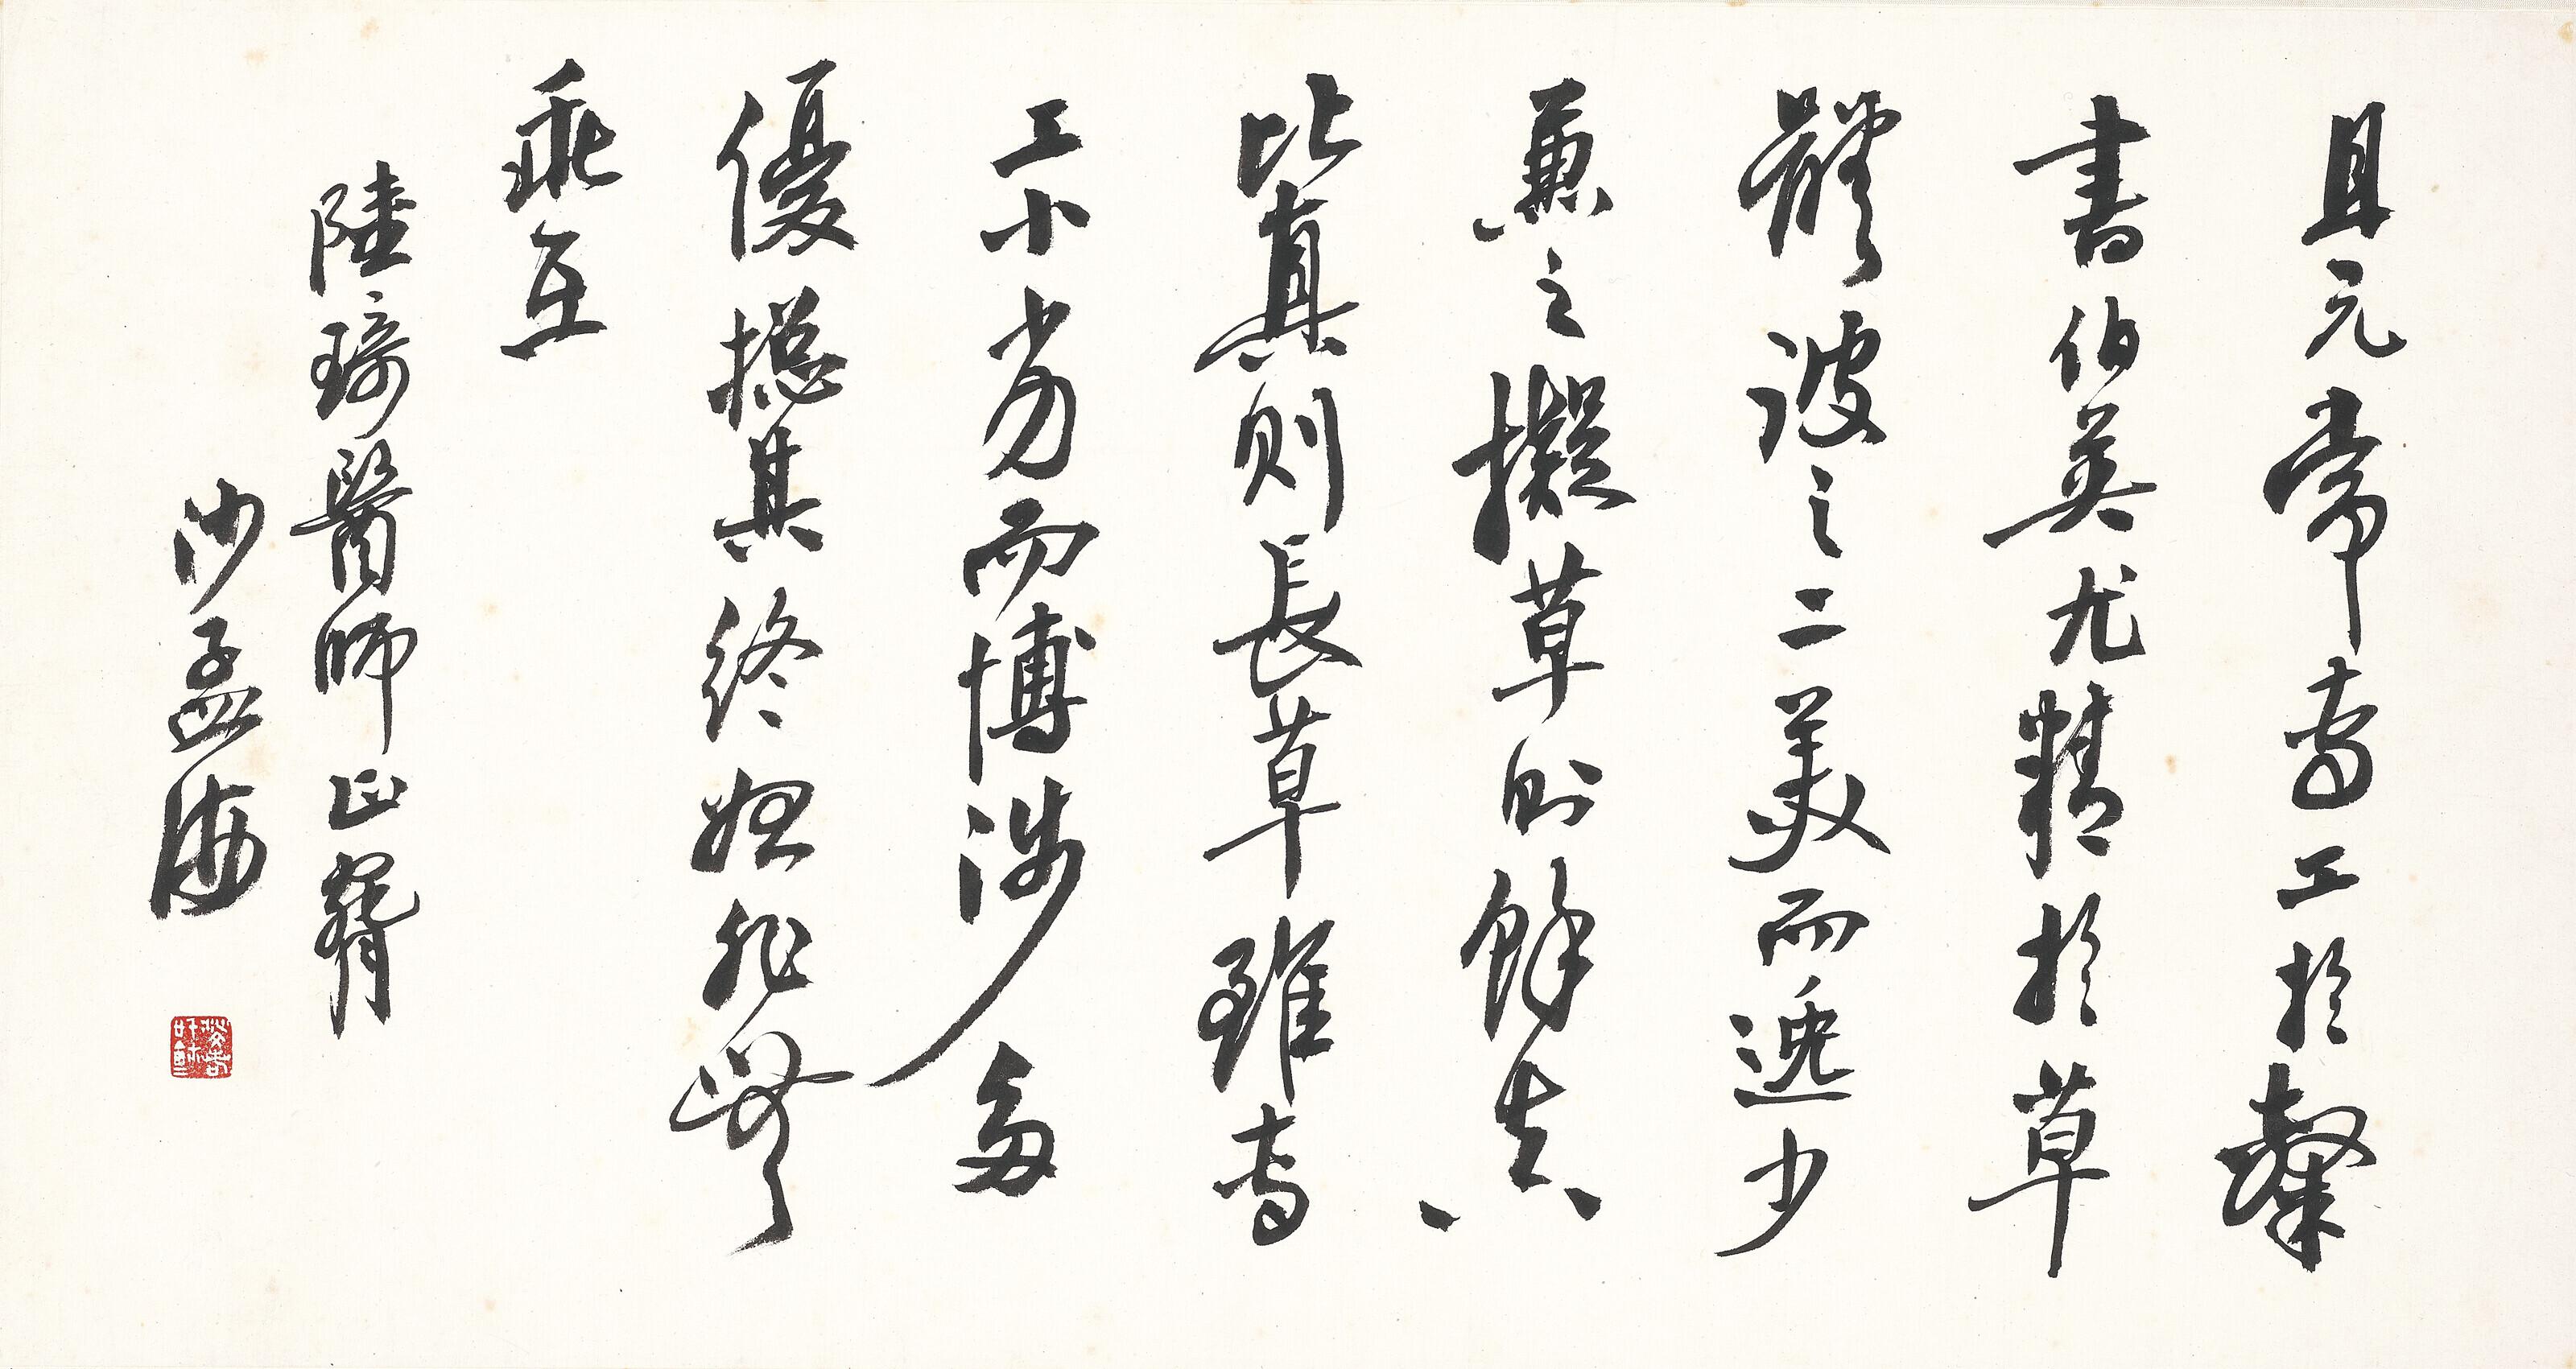 且元常專工於隸
書伯英尤精於草
體彼之二美而逸少
兼之擬草則餘真
比真則長草雖專
工小劣而博涉多
優揔其終始匪無
乖互
陸琦醫師正腕
沙孟海